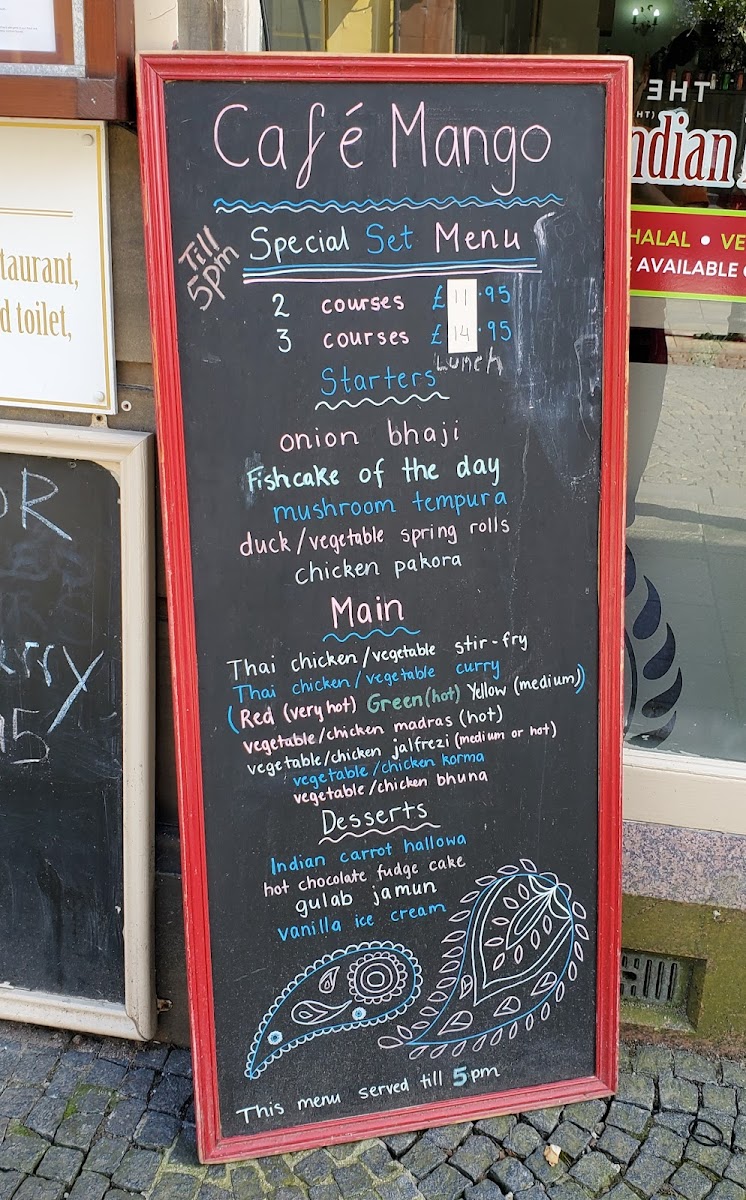 Café Mango
Till
5pm
Special Set Menu
2 courses £11.95
3 courses £14.95
Lunch
Starters
onion bhaji
Fishcake of the day
mushroom tempura
duck/vegetable spring rolls
chicken pakora
Main
Thai chicken/vegetable stir-fry
Thai chicken/vegetable curry
(Red (very hot) Green (hot) Yellow (medium))
vegetable/chicken madras (hot)
vegetable/chicken jalfrezi (medium or hot)
vegetable/chicken korma
vegetable/chicken bhuna
Desserts
Indian carrot hallowa
hot chocolate fudge cake
gulab jamun
vanilla ice cream
This menu served till 5pm
THE
ndian
HALAL • VE
AVAILABLE
taurant,
d toilet,
OR
erry